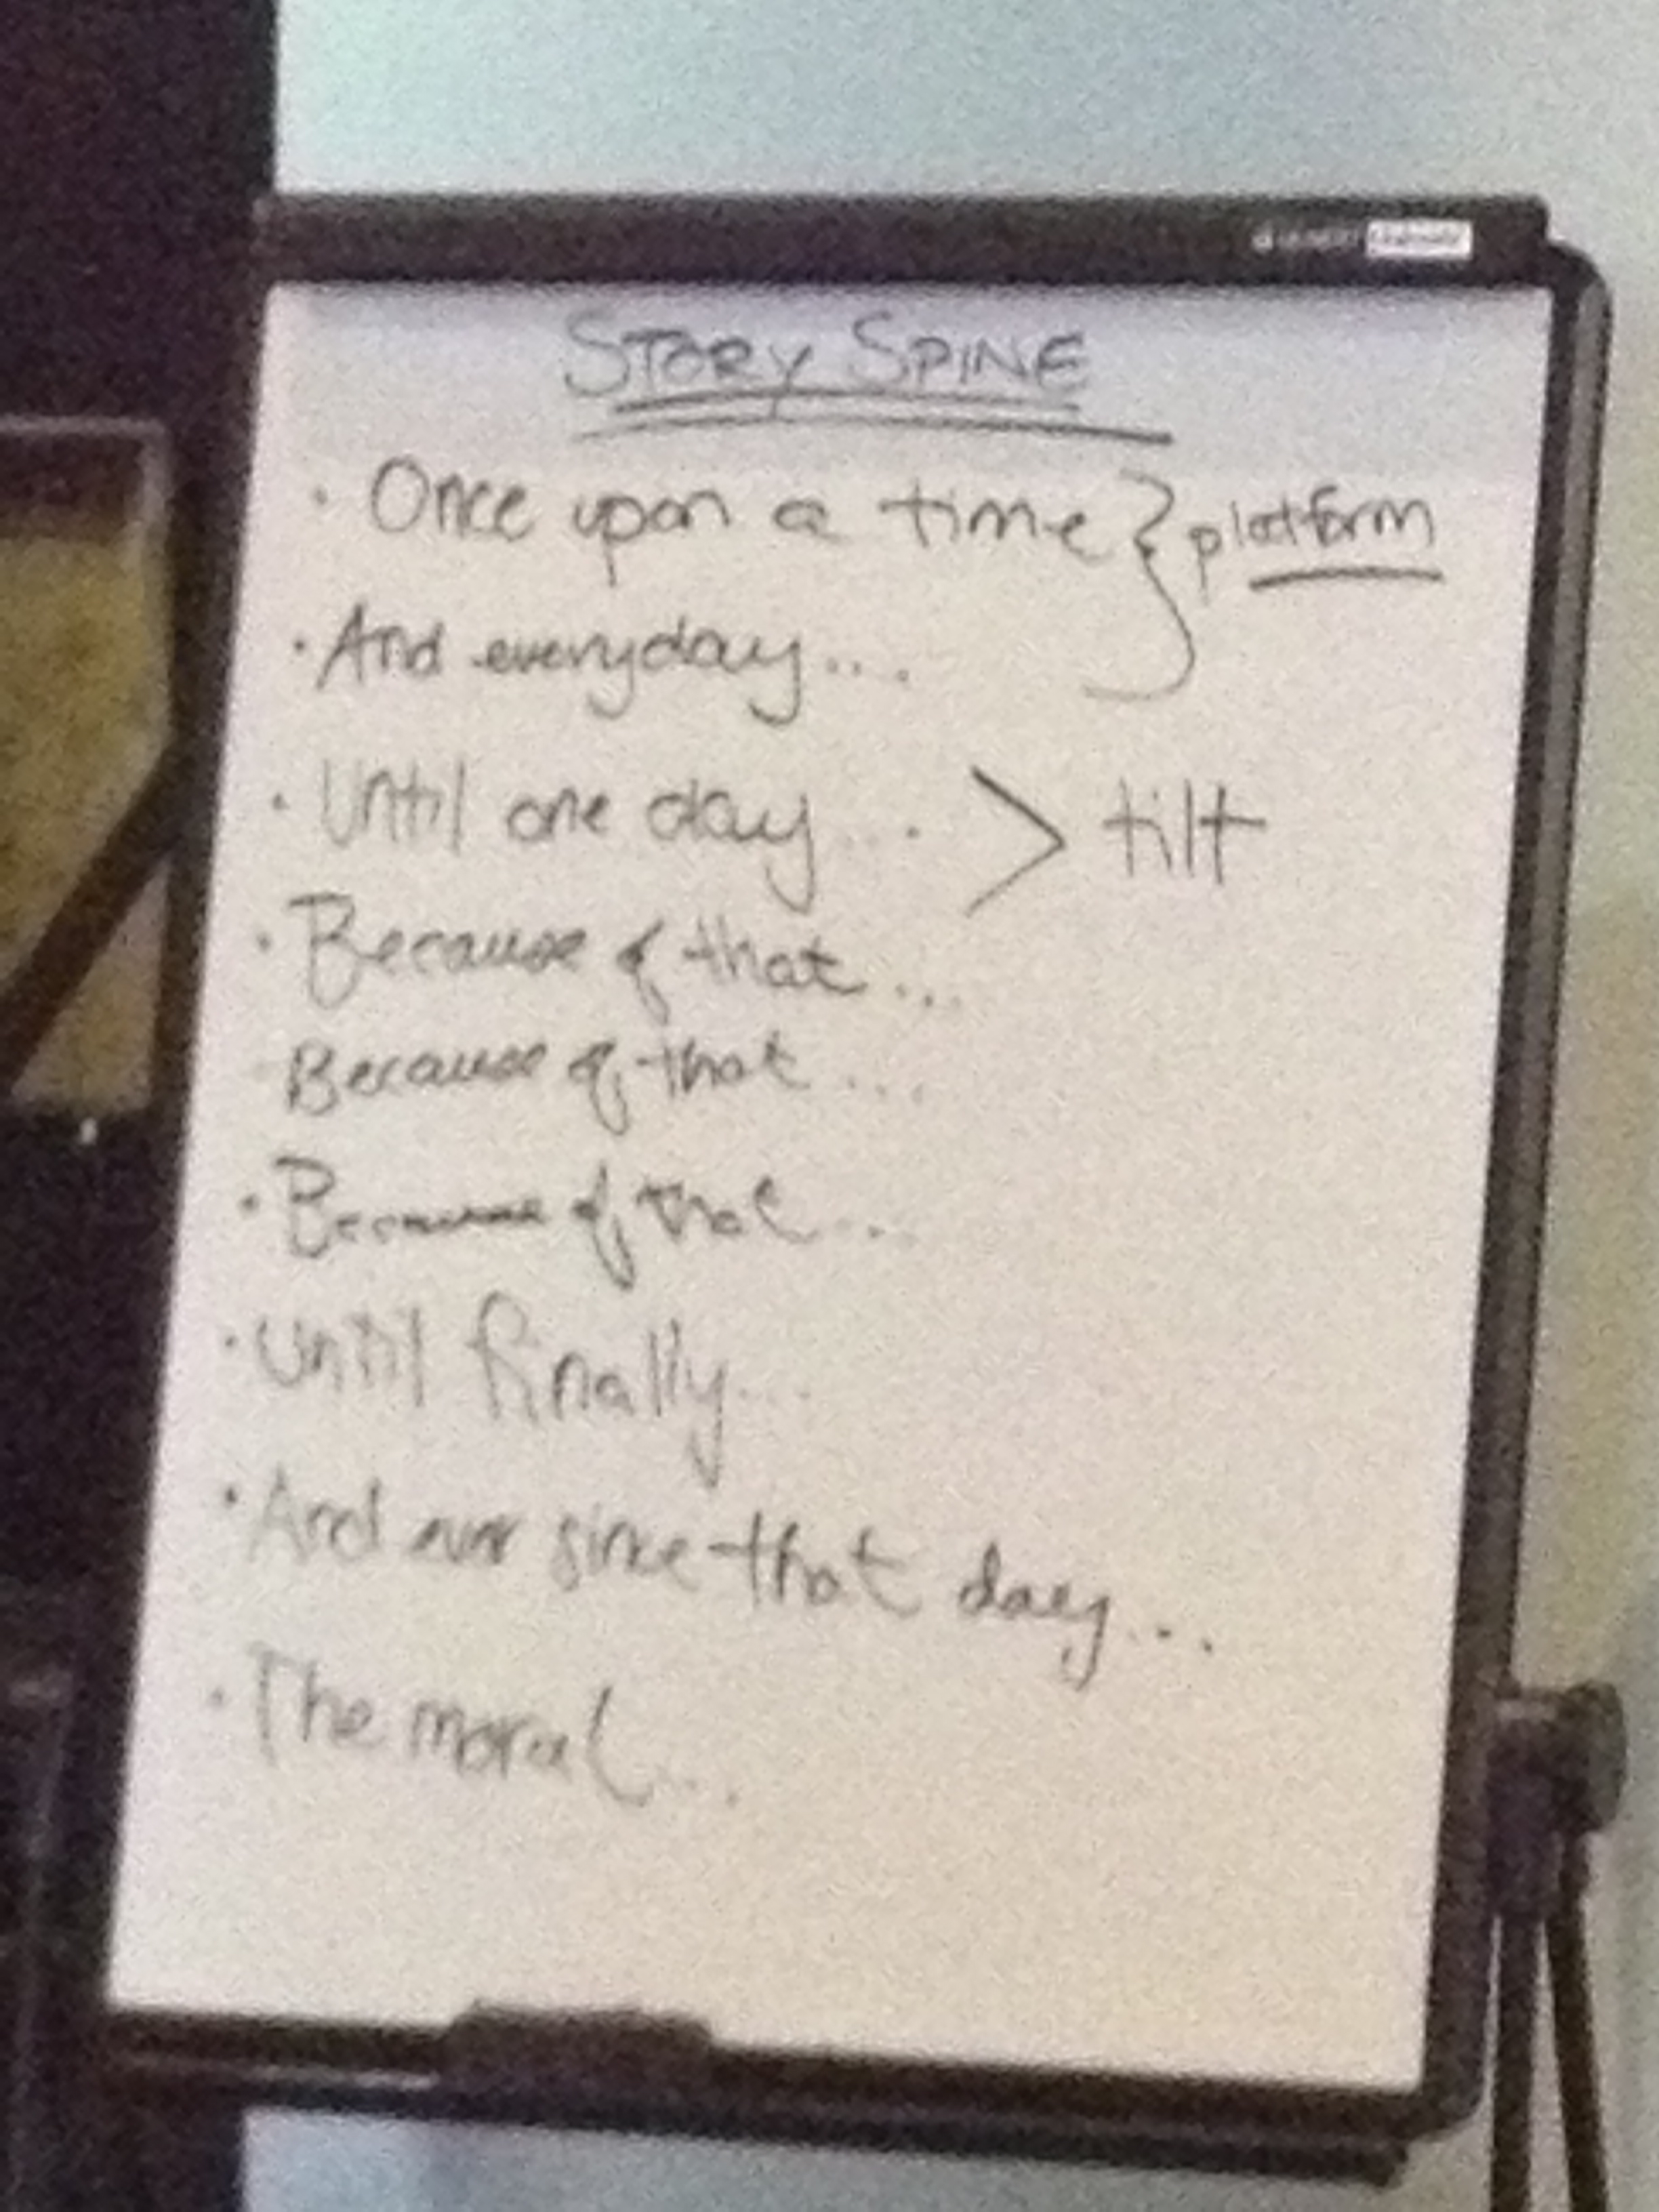 STORY SPINE
· Once upon a time } platform
· And everyday....
· Until one day.... > tilt
· Because of that...
Because of that....
· Because of that...
· Until finally...
· And ever since that day...
· The moral...